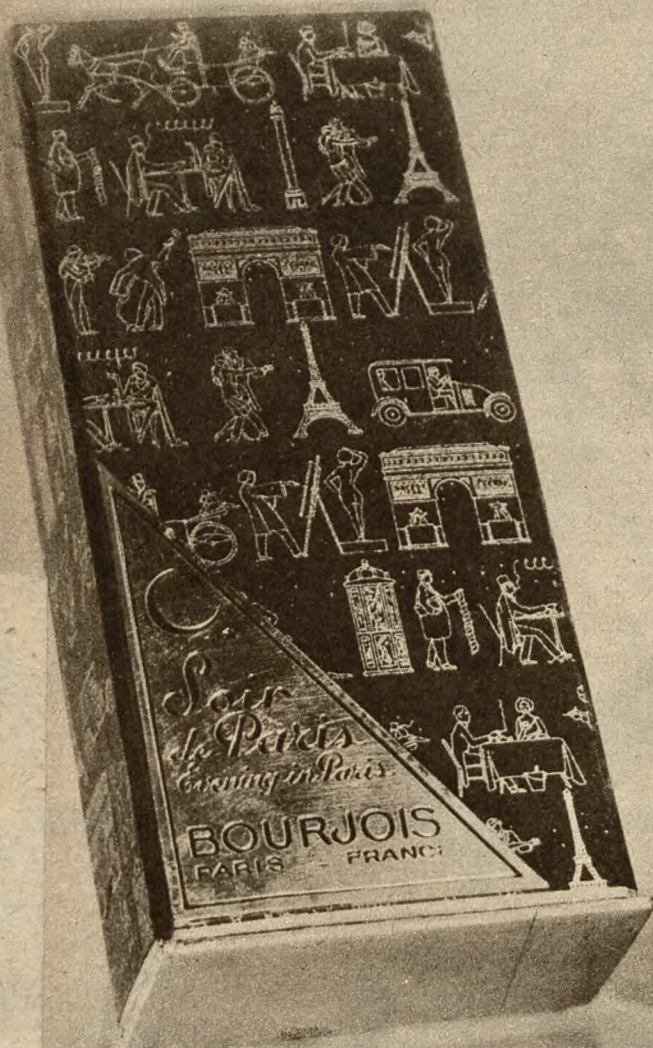 Soir
de Paris
Evening in Paris
BOURJOIS
PARIS - FRANCE